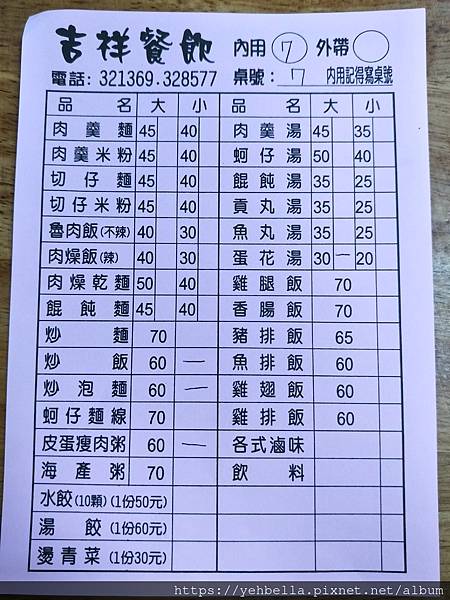 吉祥餐飲 內用 7 外帶
電話: 321369.328577 桌號: 7 內用記得寫桌號
品名 大 小 品名 大 小
肉羹麵 45 40 肉羹湯 45 35
肉羹米粉 45 40 蚵仔湯 50 40
切仔麵 45 40 餛飩湯 35 25
切仔米粉 45 40 貢丸湯 35 25
魯肉飯(不辣) 40 30 魚丸湯 35 25
肉燥飯(辣) 40 30 蛋花湯 30 一 20
肉燥乾麵 50 40 雞腿飯 70
餛飩麵 45 40 香腸飯 70
炒麵 70 豬排飯 65
炒飯 60 一 魚排飯 60
炒泡麵 60 一 雞翅飯 60
蚵仔麵線 70 雞排飯 60
皮蛋瘦肉粥 60 一 各式滷味
海產粥 70 飲料
水餃(10顆)(1份50元)
湯餃(1份60元)
燙青菜(1份30元)
https://yehbella.pixnet.net/album